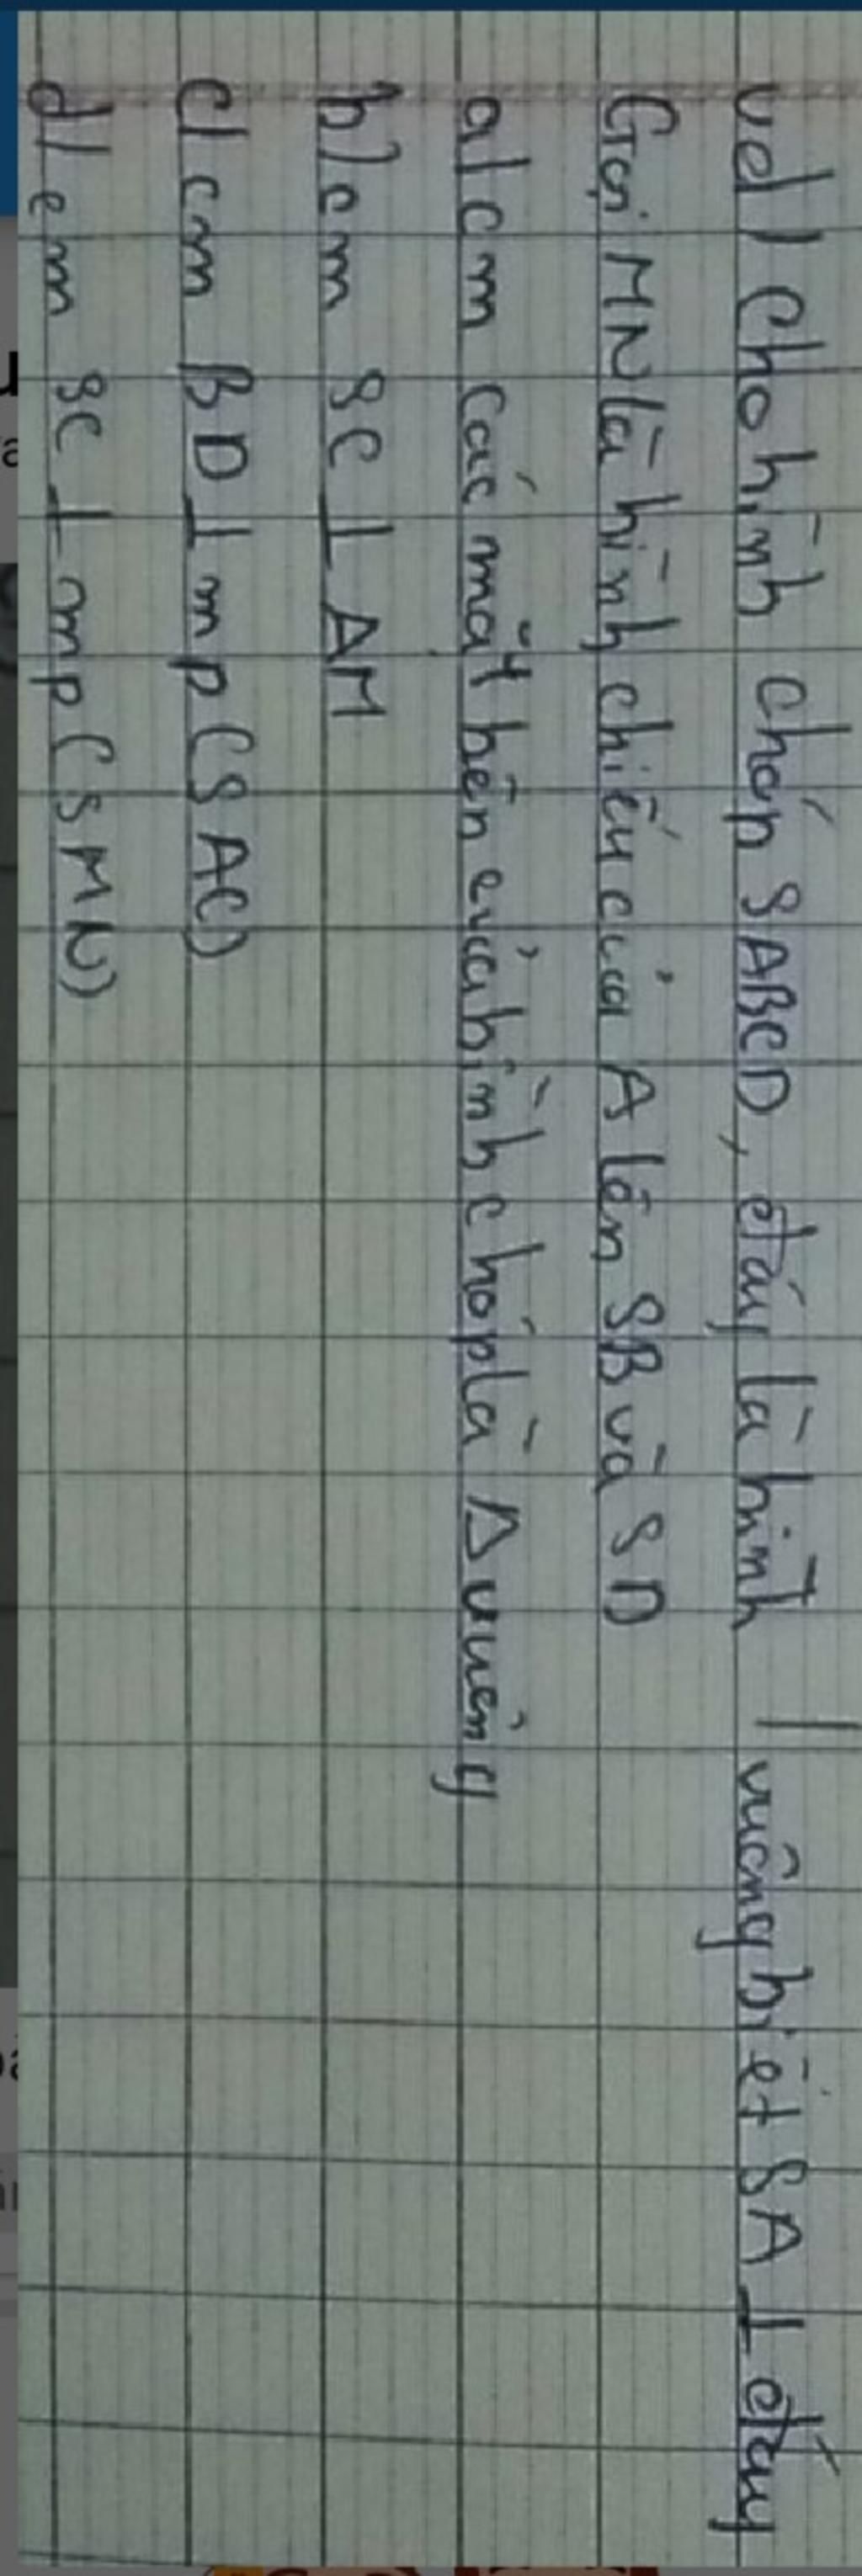 vd) Cho hình chóp SABCD, đáy là hình | vuông biết SA ⊥ đáy
Gọi MN là hình chiếu của A lên SB và SD
a/ cm các mặt bên của hình chóp là Δ vuông
b) cm SC ⊥ AM
c/ cm BD ⊥ mp (SAC)
d/ cm SC ⊥ mp (SMN)